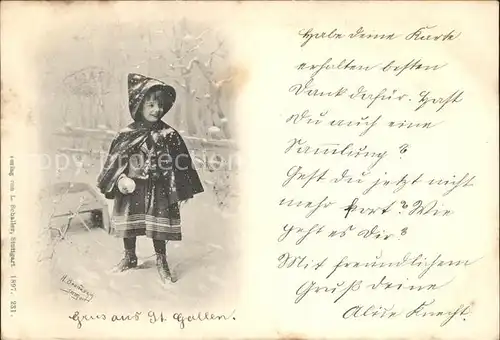 Habe deine Karte
erhalten besten
Dank dafür. Hast
Du auch eine
Sammlung?
Gest du jetzt nicht
mehr fort? Wie
geht es Dir?
Mit freundlichem
Gruß deine
Alice Knecht.
Gruss aus St. Gallen.
Verlag von L. Schaller, Stuttgart 1897. 231.